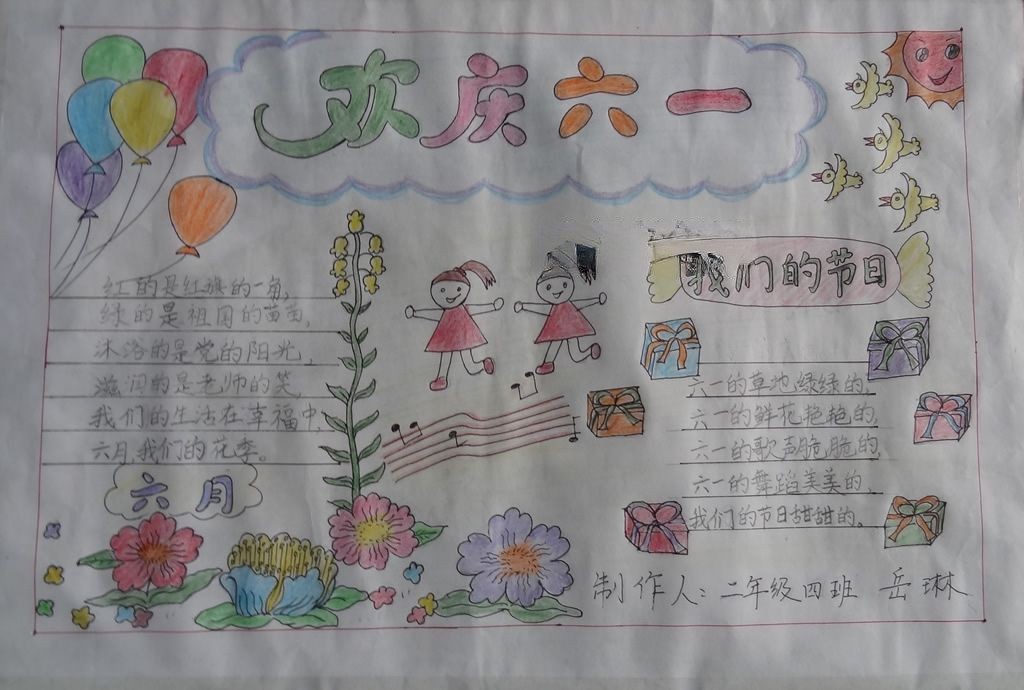 欢庆六一
红的是红旗的一角,
绿的是祖国的苗苗,
沐浴的是党的阳光,
滋润的是老师的笑,
我们的生活在幸福中,
六月,我们的花季。
六月
我们的节日
六一的草地绿绿的,
六一的鲜花艳艳的,
六一的歌声脆脆的,
六一的舞蹈美美的,
我们的节日甜甜的。
制作人:二年级四班 岳琳